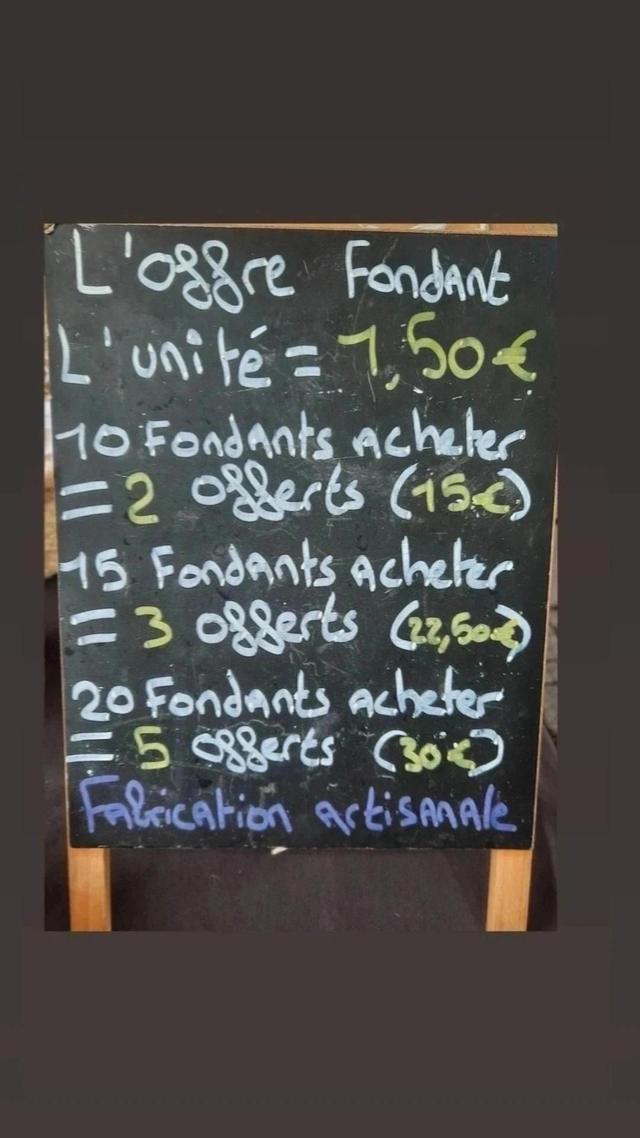 L'offre Fondant
L'unité = 1,50€
10 Fondants acheter
= 2 offerts (15€)
15 Fondants acheter
= 3 offerts (22,50€)
20 Fondants acheter
= 5 offerts (30€)
Fabrication artisanale